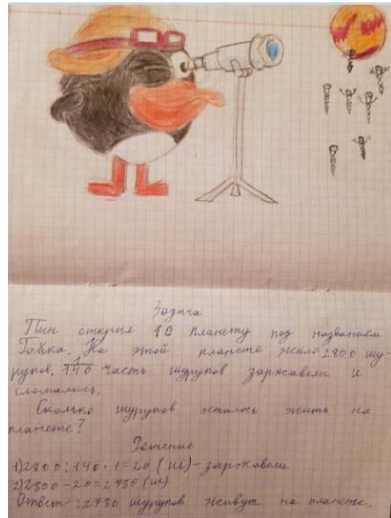 Задача
Пин открыл 10 планету под названием
Гайка. На этой планете жило 2800 шу-
рупов, 1/140 часть шурупов заржавели и
сломались.
Сколько шурупов осталось жить на
планете?
Решение
1) 2800:140·1=20 (ш) - заржавели
2) 2800-20=2780 (ш)
Ответ: 2780 шурупов живут на планете.